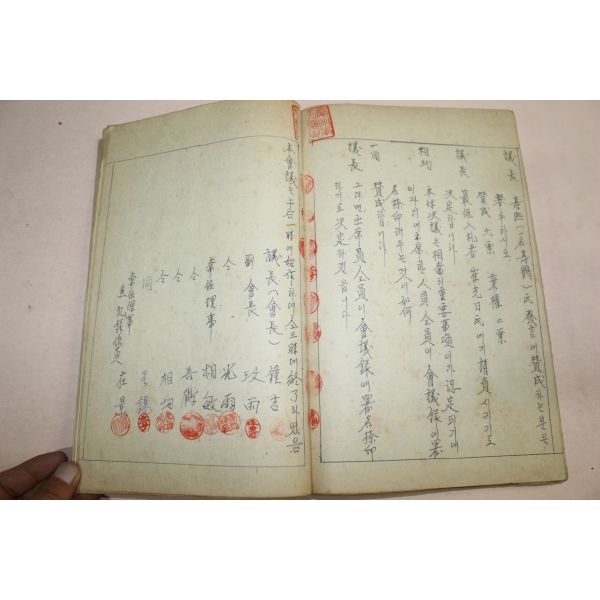 議長 喜熙(一名壽鵬)氏 發言에 贊成하는 분은
擧手하시요
贊成 六票 棄權 二票
議長 最低入札者 崔光日氏에게 請負시키기로
決定합니다
相均 本件決議는 相當히 重要事項이라 認定되기에
이자리에 出席한 人員 全員이 會議錄에 署
名捺印해두는것이 如何
一同 贊成합니다
議長 그러면 出席員全員이 會議錄에 署名捺印
하기로 決定하겠읍니다
本會議는 上午 一時에 始作하여 仝三時에 終了하였음
議長(會長) 鍾吉
副會長 玟雨
仝 光雨
常任理事 相敏
仝 吾鵬
仝 相均
仝
同
常任理事
兼 記錄係員 在昊